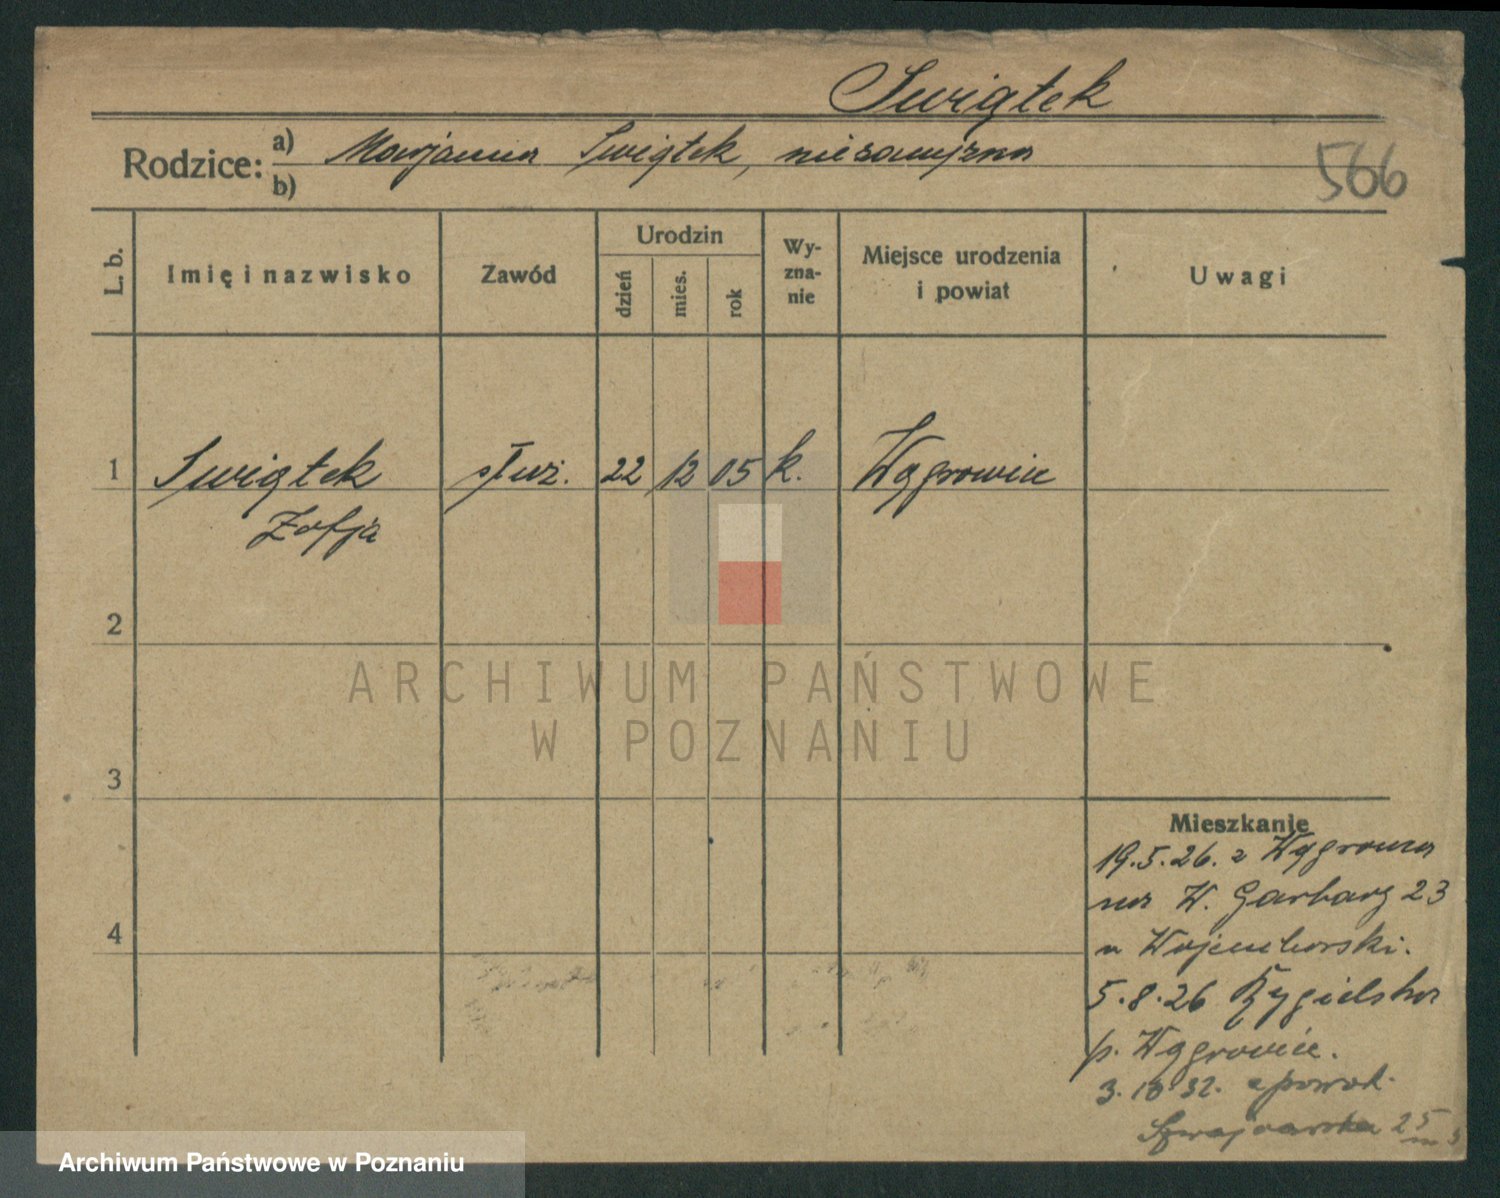 Swiątek
Rodzice: a) Marjanna Swiątek, niezamężna
b)
566
L. b.
Imię i nazwisko
Zawód
Urodzin
dzień
mies.
rok
Wy-
zna-
nie
Miejsce urodzenia
i powiat
Uwagi
1 Swiątek służ. 22 12 05 k. Wągrowiec
Zofja
2
ARCHIWUM PAŃSTWOWE
W POZNANIU
3
Mieszkanie
19.5.26. z Wągrowca
na W. Garbary 23
u
4
5.8.26
p. Wągrowiec.
3.10.32. z powrot.
25
Archiwum Państwowe w Poznaniu